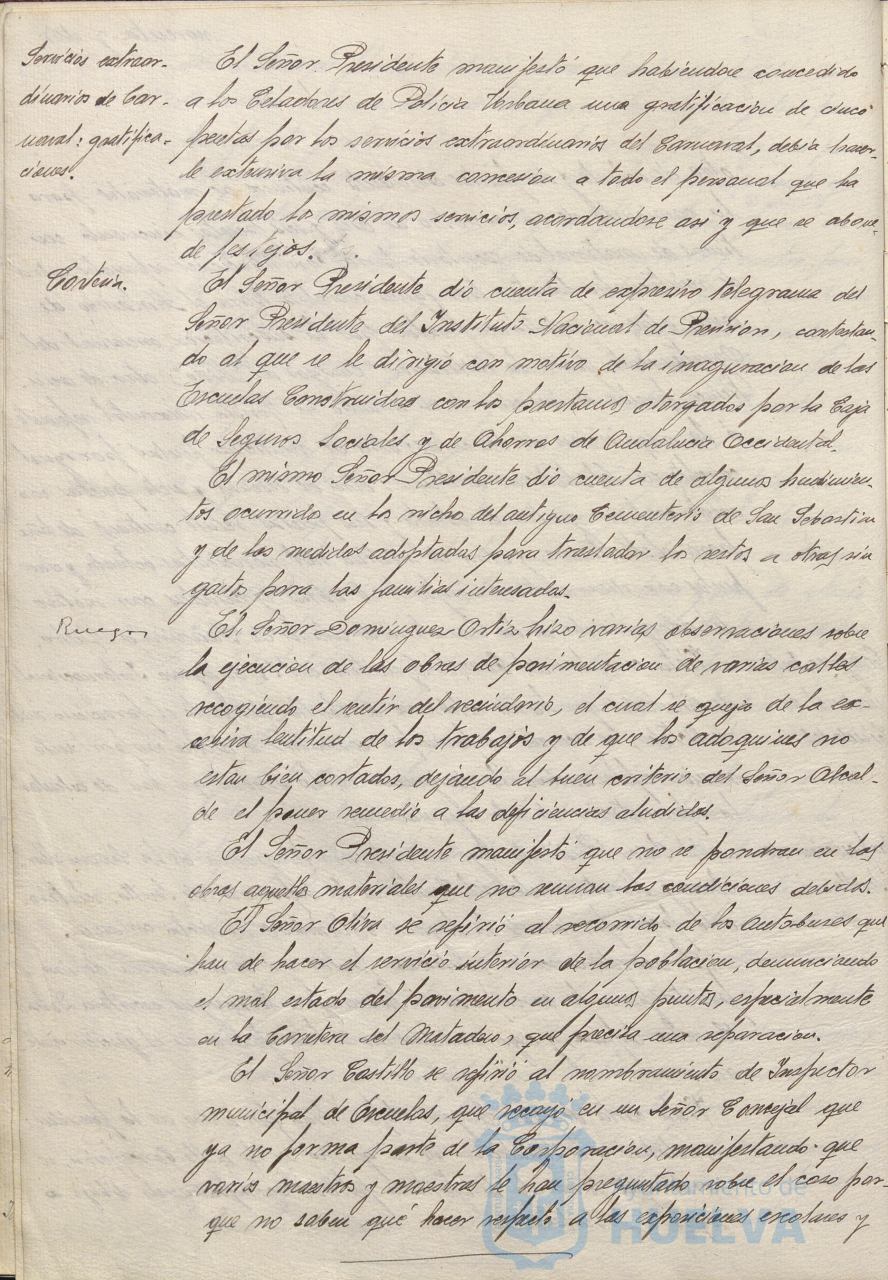 Servicios extraor-
dinarios de Car-
naval: gratifica-
ciones.
El Señor Presidente manifestó que habiéndose concedido
a los Celadores de Policia Urbana una gratificacion de cinco
pesetas por los servicios extraordinarios del Carnaval, debia hacer-
le extensiva la misma concesion a todo el personal que ha
prestado los mismos servicios, acordandose asi y que se abone
de festejos.
Cortesia.
El Señor Presidente dio cuenta de expresivo telegrama del
Señor Presidente del Instituto Nacional de Prevision, contestan-
do al que se le dirigió con motivo de la inaguracion de las
Escuelas Construidas con los prestamos otorgados por la Caja
de Seguros Sociales y de Ahorros de Andalucia Occidental.
El mismo Señor Presidente dio cuenta de algunos hundimien-
tos ocurrido en los nicho del antiguo Cementerio de San Sebastian
y de las medidas adoptadas para trasladar los restos a otras sin
gastos para las familias interesadas.
Ruegos
El Señor Dominguez Ortiz hizo varias observaciones sobre
la ejecucion de las obras de pavimentacion de varias calles
recogiendo el sentir del vecindario, el cual se queja de la ex-
cesiva lentitud de los trabajos y de que los adoquines no
estan bien cortados, dejando al buen criterio del Señor Alcal-
de el poner remedio a las deficiencias aludidas.
El Señor Presidente manifestó que no se pondran en las
obras aquellos materiales que no reunan las condiciones debidas.
El Señor Oliva se refirió al recorrido de los autobuses que
han de hacer el servicio interior de la poblacion, denunciando
el mal estado del pavimento en algunos puntos, especialmente
en la Carretera del Matadero, que precisa una reparacion.
El Señor Castillo se refirió al nombramiento de Inspector
municipal de Escuelas, que recayó en un Señor Concejal que
ya no forma parte de la Corporacion, manifestando que
varios maestros y maestras le han preguntado sobre el caso por-
que no saben qué hacer respecto a las exposiciones escolares y
Ayuntamiento de
HUELVA